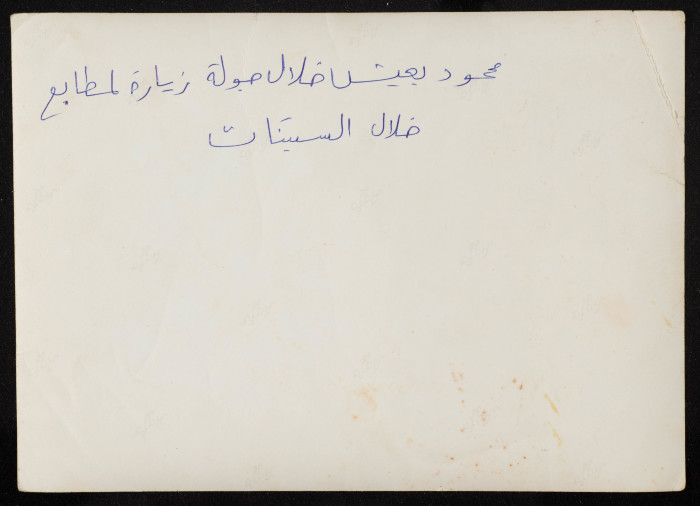 محمود يعيش خلال جولة زيارة لمطابع
خلال الستينات